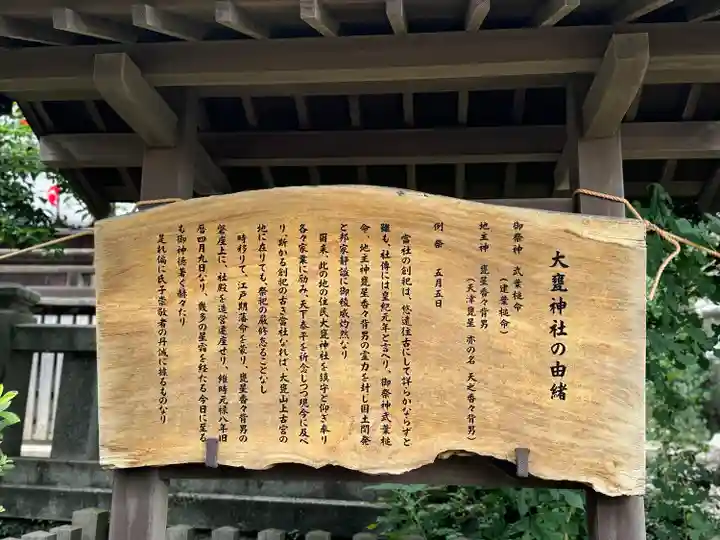 大甕神社の由緒
御祭神 武葉槌命
（建葉槌命）
地主神 甕星香々背男
（天津甕星 亦の名 天之香々背男）
例祭 五月五日
当社の創祀は、悠遠往古にして詳らかならずと
雖も、社傳には皇紀元年と言へり、御祭神武葉槌
命、地主神甕星香々背男の霊力を封じ国土開発
と邦家静謐に御稜威灼然なり
爾来、此の地の住民大甕神社を鎮守と仰ぎ奉り
各々家業に励み、天下泰平を祈念しつつ現今に及べ
り、斯かる創祀の古き当社なれば、大甕山上古宮の
地に在りても祭祀の厳修怠ることなし
時移りて、江戸期藩命を蒙り、甕星香々背男の
磐座上に、社殿を造営遷座せり、維時元禄八年旧
暦四月九日なり、幾多の星霜を経たる今日に至る
も御神徳著く赫々たり
是れ偏に氏子崇敬者の丹誠に據るものなり